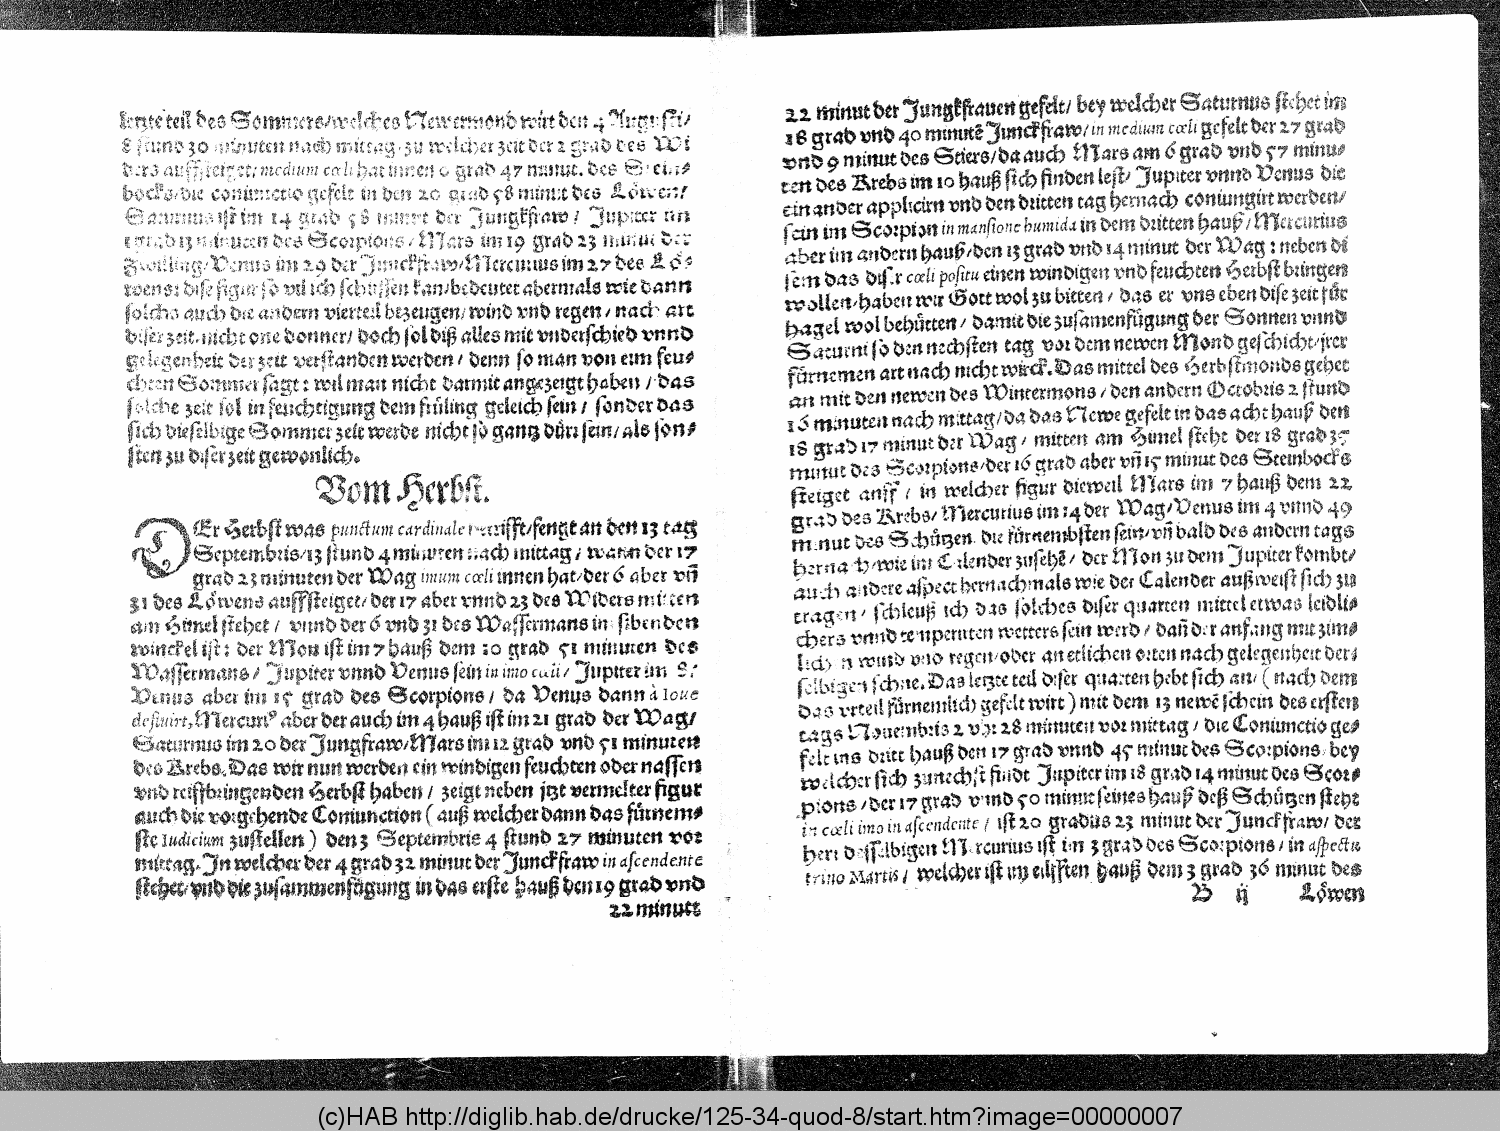 letzte teil des Sommers/welches Newermond wirt den 4 Augusti/
8 stund 30 minuten nach mittag/zu welcher zeit der 2 grad des Wi
ders auffsteiget/medium cœli hat innen 0 grad 47 minut. des Stein⸗
bocks/die coniunctio gefelt in den 20 grad 58 minut des Löwen/
Saturnus ist im 14 grad 58 minut der Jungkfraw/ Jupiter im
1 grad 13 minuten des Scorpions/Mars im 19 grad 23 minut der
Zwilling/Venus im 29 der Junckfraw/Mercurius im 27 des Lö⸗
wens: dise figur so vil ich schliessen kan/bedeutet abermals wie dann
solchs auch die andern vierteil bezeugen/wind vnd regen/nach art
diser zeit/nicht one donner/ doch sol diß alles mit vnderschied vnnd
gelegenheit der zeit verstanden werden/ denn so man von eim feu⸗
chten Sommer sagt: wil man nicht darmit angezeigt haben/das
solche zeit sol in feuchtigung dem früling geleich sein/ sonder das
sich dieselbige Sommer zeit werde nicht so gantz dürr sein/als son⸗
sten zu diser zeit gewonlich.
Vom Herbst.
DEr Herbst was punctum cardinale betrifft/fengt an den 13 tag
Septembris/13 stund 4 minuten nach mittag/ wann der 17
grad 23 minuten der Wag imum cœli innen hat/der 6 aber vñ
31 des Löwens auffsteiget/der 17 aber vnnd 23 des Widers mitten
am Himel stehet/ vnnd der 6 vnd 31 des Wassermans im sibenden
winckel ist: der Mon ist im 7 hauß dem 10 grad 51 minuten des
Wassermans/ Jupiter vnnd Venus sein in imo cœli/ Jupiter im
Venus aber im 15 grad des Scorpions/ da Venus dann à Ioue
defluirt,Mercurꝰ aber der auch im 4 hauß ist im 21 grad der Wag/
Saturnus im 20 der Jungfraw/Mars im 12 grad vnd 51 minuten
des Krebs.Das wir nun werden ein windigen feuchten oder nassen
vnd reiffbringenden Herbst haben/ zeigt neben jtzt vermelter figur
auch die vorgehende Coniunction (auß welcher dann das fürnem⸗
ste Iudicium zustellen) den 3 Septembris 4 stund 27 minuten vor
mittag.In welcher der 4 grad 32 minut der Junckfraw in ascendente
stehet/vnd die zusammenfügung in das erste hauß den 19 grad vnd
22 minutt
22 minut der Jungkfrauen gefelt/ bey welcher Saturnus stehet im
18 grad vnd 40 minutē Junckfraw/in medium cœli gefelt der 27 grad
vnd 9 minut des Stiers/da auch Mars am 6 grad vnd 57 minu⸗
ten des Krebs im 10 hauß sich finden lest/ Jupiter vnnd Venus die
ein ander applicirn vnd den dritten tag hernach coniungirt werden/
sein im Scorpion in mansione humida in dem dritten hauß/Mercurius
aber im andern hauß/den 13 grad vnd 14 minut der Wag: neben di
sem das diser cœli positu einen windigen vnd feuchten Herbst bringen
wollen/haben wir Gott wol zu bitten/ das er vns eben dise zeit für
hagel wol behütten/ damit die zusamenfügung der Sonnen vnnd
Saturni so den nechsten tag vor dem newen Mond geschicht/jrer
fürnemen art nach nicht wirck.Das mittel des Herbstmonds gehet
an mit den newen des Wintermons/den andern Octobris 2 stund
16 minuten nach mittag/da das Newe gefelt in das acht hauß den
18 grad 17 minut der Wag/ mitten am Himel steht der 18 grad 35
minut des Scorpions/der 16 grad aber vñ 15 minut des Steinbocks
steiget auff/ in welcher figur dieweil Mars im 7 hauß dem 22
grad des Krebs/Mercurius im 14 der Wag/Venus im 4 vnnd 49
minut des Schützen die fürnembsten sein/vñ bald des andern tags
hernach/wie im Calender zusehē/ der Mon zu dem Jupiter kombt/
auch andere aspect hernachmals wie der Calender außweist sich zu
tragen/ schleuß ich das solches diser quarten mittel etwas leidli⸗
chers vnnd temperirten wetters sein werd/ dañ der anfang mit zim⸗
lichen wind vnd regen/oder an etlichen orten nach gelegenheit der⸗
selbigen schne.Das letzte teil diser quarten hebt sich an/(nach dem
das vrteil fürnemlich gefelt wirt) mit dem 13 newē schein des ersten
tags Nouembris 2 vhr 28 minuten vor mittag/ die Coniunctio ge⸗
felt ins dritt hauß den 17 grad vnnd 45 minut des Scorpions/bey
welcher sich zunechst findt Jupiter im 18 grad 14 minut des Scor⸗
pions/der 17 grad vnnd 50 minut seines hauß deß Schützen steht
in cœli imo in ascendente/ ist 20 gradus 23 minut der Junckfraw/ der
herr desselbigen Mercurius ist im 3 grad des Scorpions/in aspectu
trino Martis/ welcher ist im eilfften hauß dem 3 grad 36 minut des
B ij Löwen
(c)HAB http://diglib.hab.de/drucke/125-34-quod-8/start.htm?image=00000007